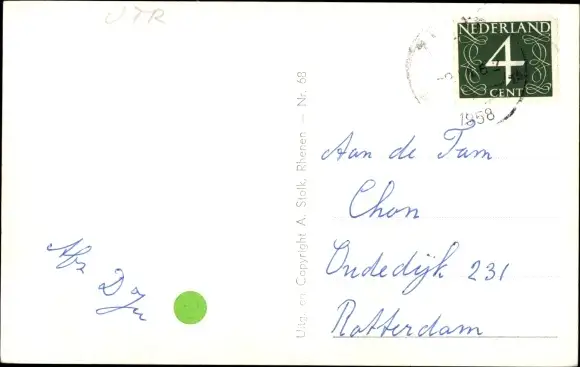 UTR
NEDERLAND
4
CENT
1958
Uitg. en Copyright A. Stolk, Rhenen — Nr. 68
Aan de Fam
Chon
Oudedijk 231
Rotterdam